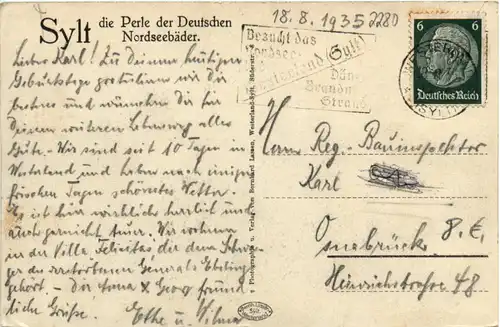 18.8.1935 2280
Sylt die Perle der Deutschen
Nordseebäder.
Besucht das
Nordsee-
Westerland (Sylt)
Düne
Brandu
Strand
6
Deutsches Reich
WESTERLAND
(SYLT)
Lieber Karl! Zu Deinem heutigen
Geburtstage gratulieren wir Dir
bestens und wünschen Dir für
Deinen weiteren Lebensweg alles
Gute. Wir sind seit 10 Tagen in
Westerland und haben nach einigen
frischen Tagen schönstes Wetter.
Es ist hier wirklich herrlich und
auch gar nicht teuer. Wir wohnen
in der Villa Felicitas die dem Schwager
des verstorbenen Generals Ebeling
gehört. - Dir Anna u. Georg freund
liche Grüße. Ethe u. Wilma
Herrn Reg. Bauinspektor
Karl
Osnabrück 8. E.
Heinrichstraße 48
Verlag von Bernhard Lassen, Westerland-Sylt,